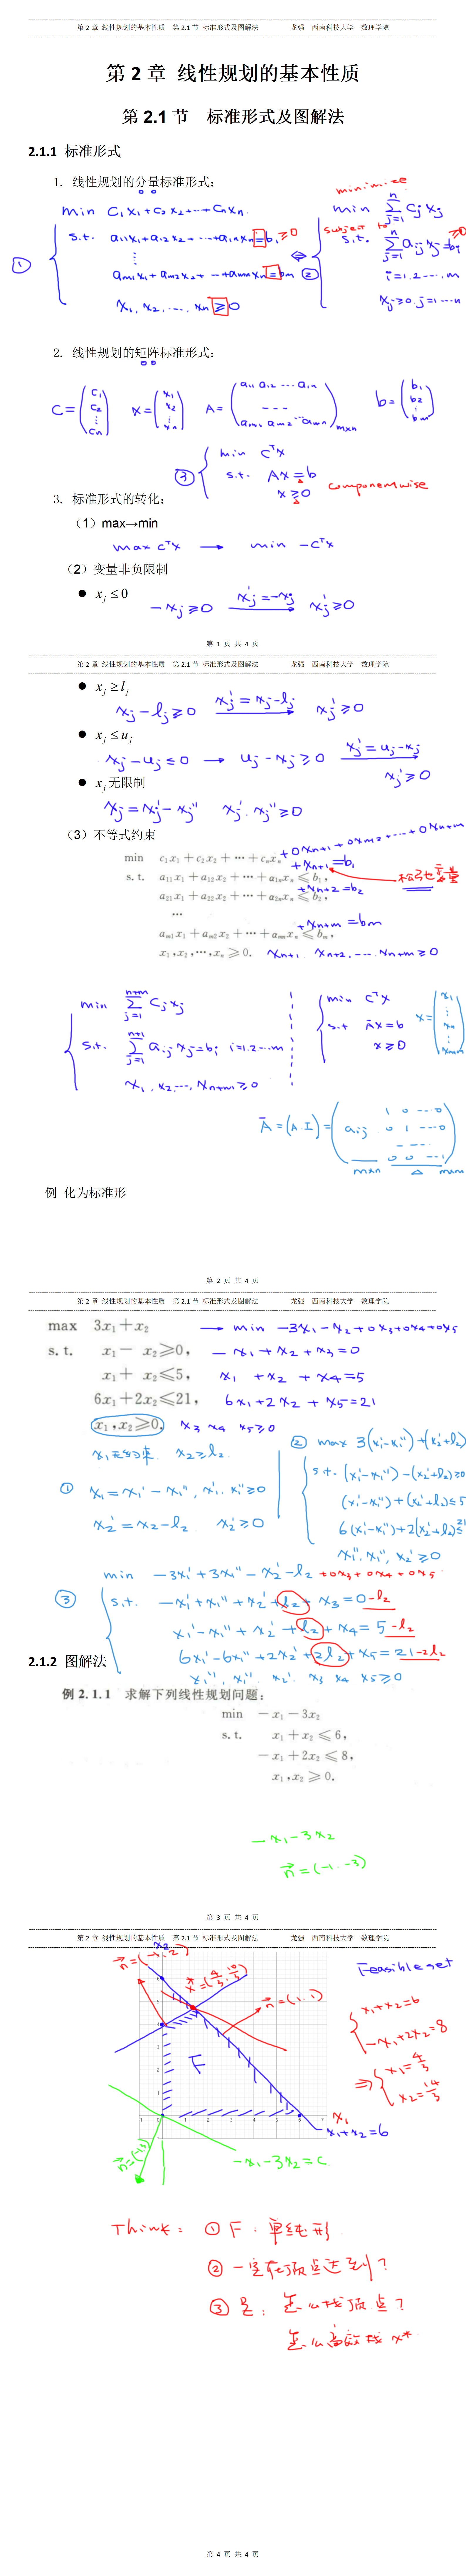 第 2 章 线性规划的基本性质 第 2.1 节 标准形式及图解法 龙强 西南科技大学 数理学院
第 2 章 线性规划的基本性质
第 2.1 节 标准形式及图解法
2.1.1 标准形式
1. 线性规划的分量标准形式:
minimize
min C₁x₁+C₂x₂+…+Cₙxₙ
min Σⱼ₌₁ⁿ Cⱼxⱼ
subject to
① s.t. a₁₁x₁+a₁₂x₂+…+a₁ₙxₙ=b₁ ≥0
⇔ ② s.t. Σⱼ₌₁ⁿ aᵢⱼxⱼ=bᵢ ≥0
⋮
aₘ₁x₁+aₘ₂x₂+…+aₘₙxₙ=bₘ
i=1.2…,m
x₁,x₂,…,xₙ≥0
xⱼ≥0,j=1…n
2. 线性规划的矩阵标准形式:
C=(C₁ C₂ ⋮ Cₙ) x=(x₁ x₂ ⋮ xₙ) A=(a₁₁ a₁₂…a₁ₙ --- aₘ₁ aₘ₂…aₘₙ)ₘₓₙ b=(b₁ b₂ ⋮ bₘ)
③ min Cᵀx
s.t. Ax=b
x≥0 componentwise
3. 标准形式的转化:
(1)max→min
max Cᵀx → min -Cᵀx
(2)变量非负限制
● xⱼ≤0 -xⱼ≥0 xⱼ'=-xⱼ → xⱼ'≥0
第 1 页 共 4 页
第 2 章 线性规划的基本性质 第 2.1 节 标准形式及图解法 龙强 西南科技大学 数理学院
● xⱼ≥lⱼ
xⱼ-lⱼ≥0 xⱼ'=xⱼ-lⱼ → xⱼ'≥0
● xⱼ≤uⱼ
xⱼ-uⱼ≤0 → uⱼ-xⱼ≥0 xⱼ'=uⱼ-xⱼ →
xⱼ'≥0
● xⱼ无限制
xⱼ=xⱼ'-xⱼ'' xⱼ'.xⱼ''≥0
(3)不等式约束
min c₁x₁+c₂x₂+…+cₙxₙ +0xₙ₊₁+0xₙ₊₂+…+0xₙ₊ₘ
s.t. a₁₁x₁+a₁₂x₂+…+a₁ₙxₙ≤b₁, +xₙ₊₁=b₁ 松弛变量
a₂₁x₁+a₂₂x₂+…+a₂ₙxₙ≤b₂, +xₙ₊₂=b₂
…
aₘ₁x₁+aₘ₂x₂+…+aₘₙxₙ≤bₘ, +xₙ₊ₘ=bₘ
x₁,x₂,…,xₙ≥0. xₙ₊₁,xₙ₊₂,…,xₙ₊ₘ≥0
min Σⱼ₌₁ⁿ⁺ᵐ Cⱼxⱼ
s.t. Σⱼ₌₁ⁿ⁺¹ aᵢⱼxⱼ=bᵢ i=1.2…m
x₁,x₂,…,xₙ₊ₘ≥0
min Cᵀx
s.t Āx=b
x≥0
x=(x₁ ⋮ xₙ ⋮ xₙ₊ₘ)
Ā=(A.I)=(aᵢⱼ 1 0 …0 0 1 …0 … 0 0 …1)
m×n △ m×m
例 化为标准形
第 2 页 共 4 页
第 2 章 线性规划的基本性质 第 2.1 节 标准形式及图解法 龙强 西南科技大学 数理学院
max 3x₁+x₂ → min -3x₁-x₂+0x₃+0x₄+0x₅
s.t. x₁-x₂≥0, -x₁+x₂+x₃=0
x₁+x₂≤5, x₁+x₂+x₄=5
6x₁+2x₂≤21, 6x₁+2x₂+x₅=21
x₁,x₂≥0, x₃ x₄ x₅≥0
x₁无约束. x₂≥l₂
① x₁=x₁'-x₁'', x₁'.x₁''≥0
x₂'=x₂-l₂ x₂'≥0
② max 3(x₁'-x₁'')+(x₂'+l₂)
s.t. (x₁'-x₁'')-(x₂'+l₂)≥0
(x₁'-x₁'')+(x₂'+l₂)≤5
6(x₁'-x₁'')+2(x₂'+l₂)≤21
x₁'.x₁'',x₂'≥0
min -3x₁'+3x₁''-x₂'-l₂+0x₃+0x₄+0x₅
③ s.t. -x₁'+x₁''+x₂'+l₂+x₃=0-l₂
x₁'-x₁''+x₂'+l₂+x₄=5-l₂
6x₁'-6x₁''+2x₂'+2l₂+x₅=21-2l₂
x₁', x₁'', x₂' x₃ x₄ x₅≥0
2.1.2 图解法
例 2.1.1 求解下列线性规划问题:
min -x₁-3x₂
s.t. x₁+x₂≤6,
-x₁+2x₂≤8,
x₁,x₂≥0.
-x₁-3x₂
n⃗=(-1.-3)
第 3 页 共 4 页
第 2 章 线性规划的基本性质 第 2.1 节 标准形式及图解法 龙强 西南科技大学 数理学院
x₂
n⃗=(-1,2)
Feasible set
n⃗=(1.1)
x₁+x₂=6
-x₁+2x₂=8
⇒ x₁=4/3
x₂=14/3
F
x₁
x₁+x₂=6
-x₁-3x₂=c
Think: ① F:单纯形
② 一定在顶点达到?
③ 是: 怎么找顶点?
怎么高效找 x*
第 4 页 共 4 页